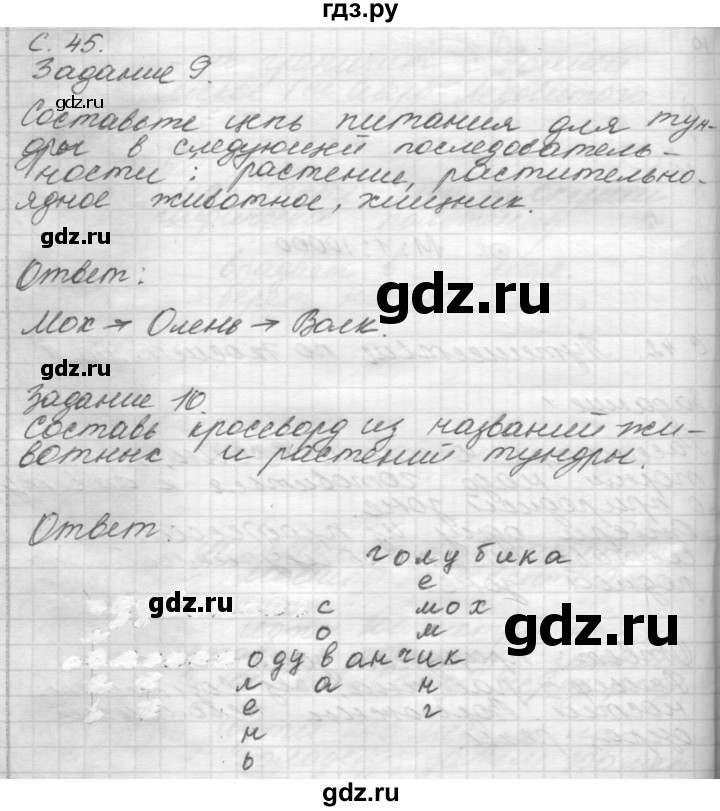 гдз.ру
С. 45.
Задание 9.
gdz.ru
Составьте цепь питания для тун-
дры в следующей последователь-
ности: растение, растительно-
ядное животное, хищник.
gdz.ru
Ответ:
gdz.ru
Мох → Олень → Волк.
Задание 10.
gdz.ru
Составь кроссворд из названий жи-
вотных и растений тундры.
Ответ:
голубика
е
gdz.ru
с мох
gdz.ru
о м м
одуванчик
л а н
е г
н
ь
gdz.ru
gdz.ru